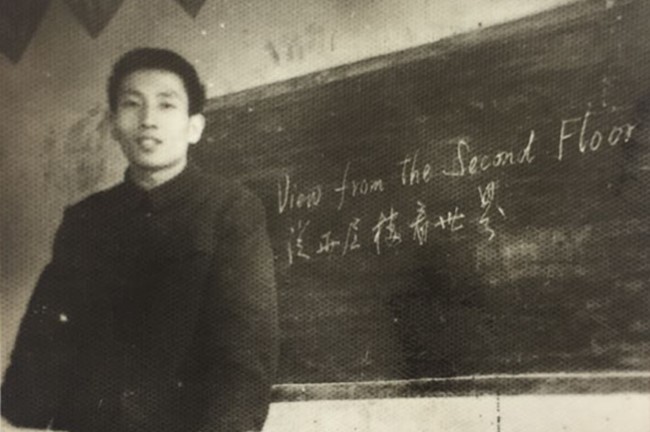 View from The Second Floor
层楼看世界